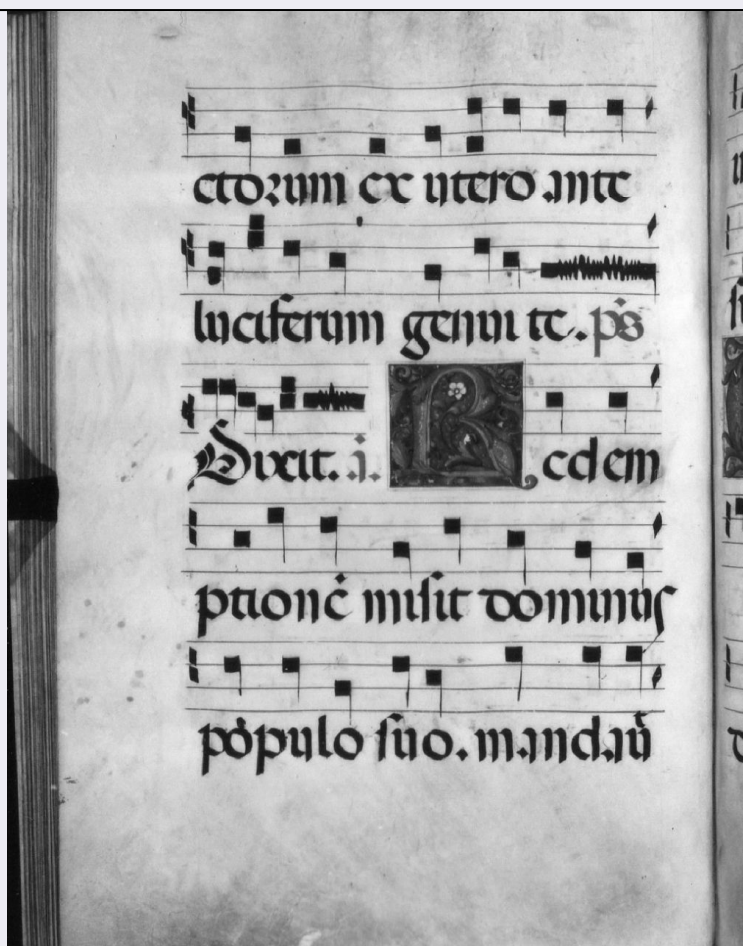 ctorum ex utero ante
luciferum genui te. p̄s
Dixit. i. Redem
ptionē misit dominus
populo suo. mandau̅